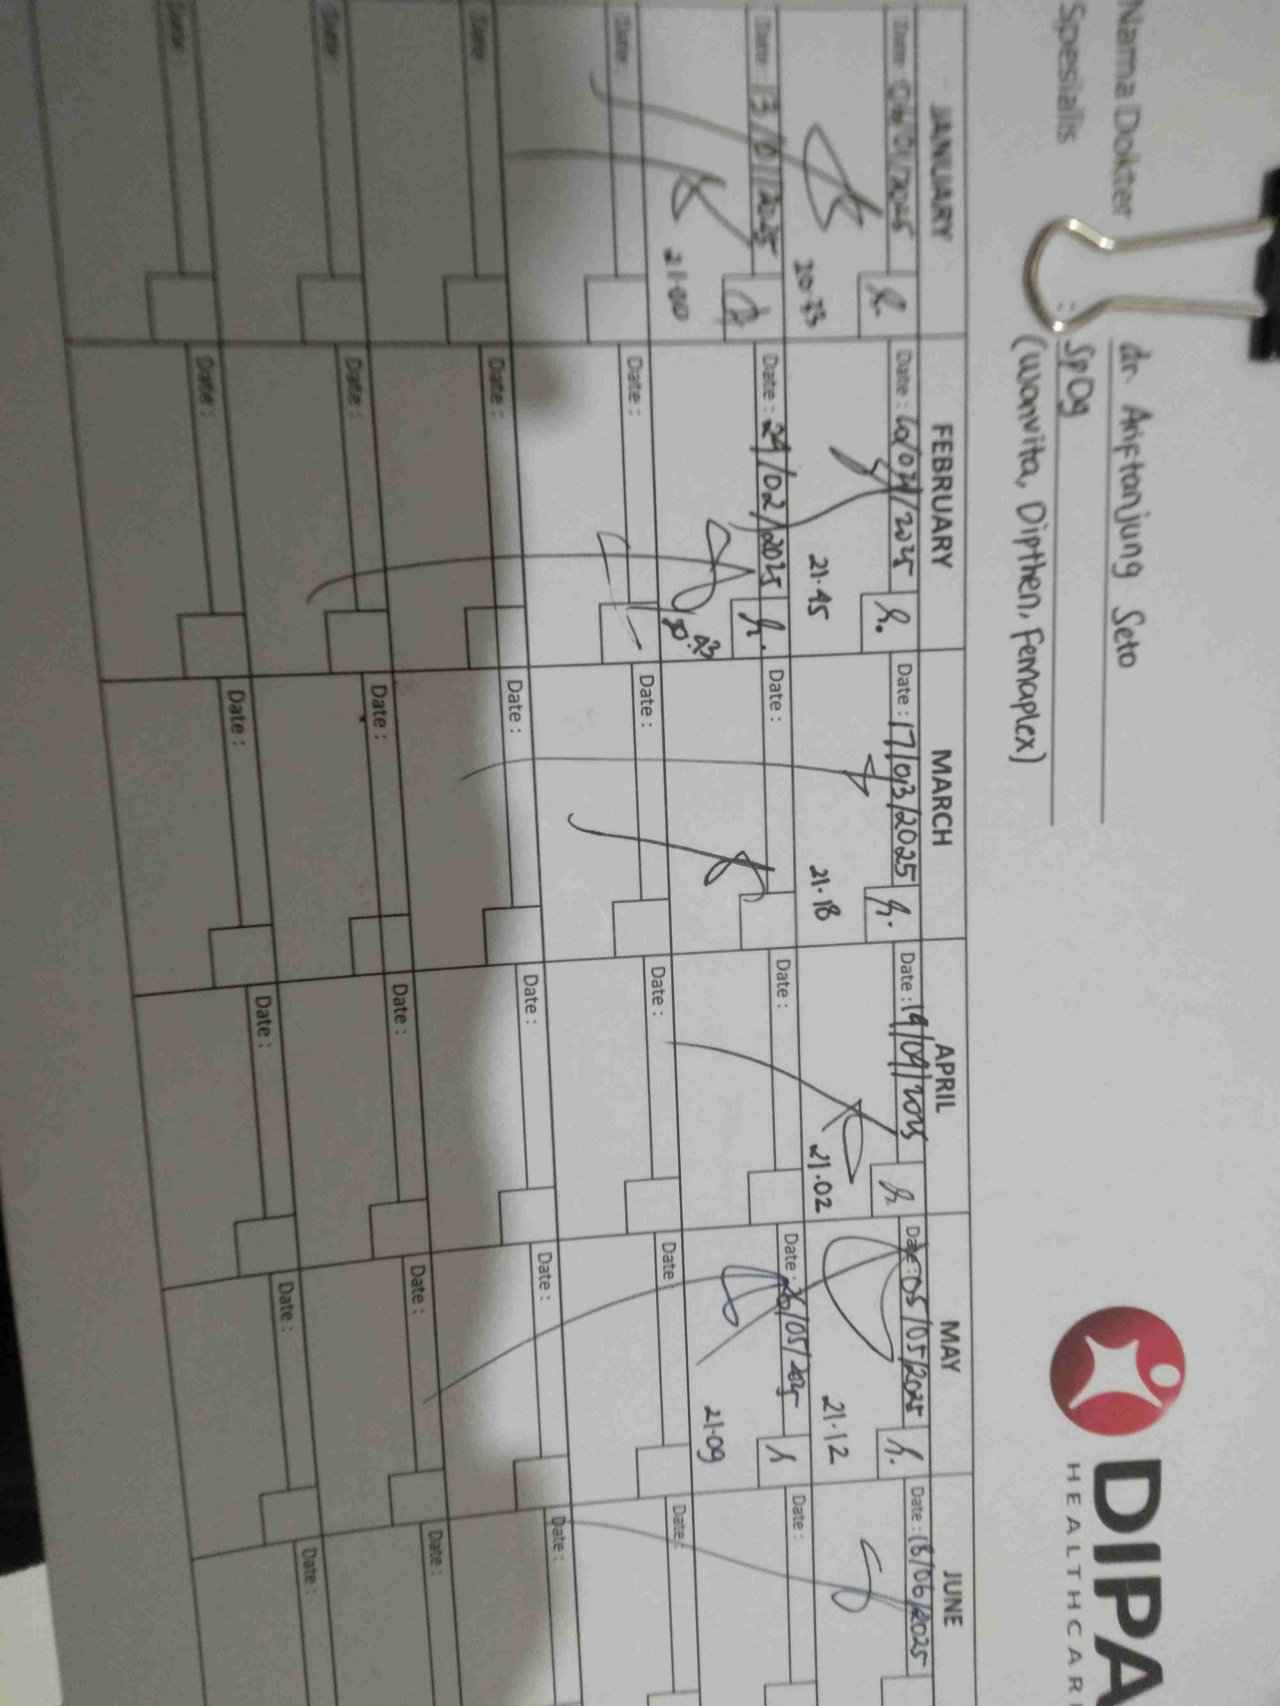 DIPA
HEALTHCAR
Nama Dokter dr. Ariftanjung Seto
Spesialis : SpOg
(wanvita, Dipthen, Femaplex)
JANUARY FEBRUARY MARCH APRIL MAY JUNE
Date : 06/01/2025 h. Date : 10/02/2025 h. Date : 17/03/2025 h. Date : 14/04/2025 h Date : 05/05/2025 h. Date : 18/06/2025
21.45 21.18 21.02 21.12
Date : 13/01/2025 Date : 24/02/2025 h. Date : Date : Date : 26/05/2025 h Date :
21.00 21.09
Date : Date : Date : Date : Date : Date :
Date : Date : Date : Date : Date : Date :
Date : Date : Date : Date : Date : Date :
Date : Date : Date : Date : Date : Date :